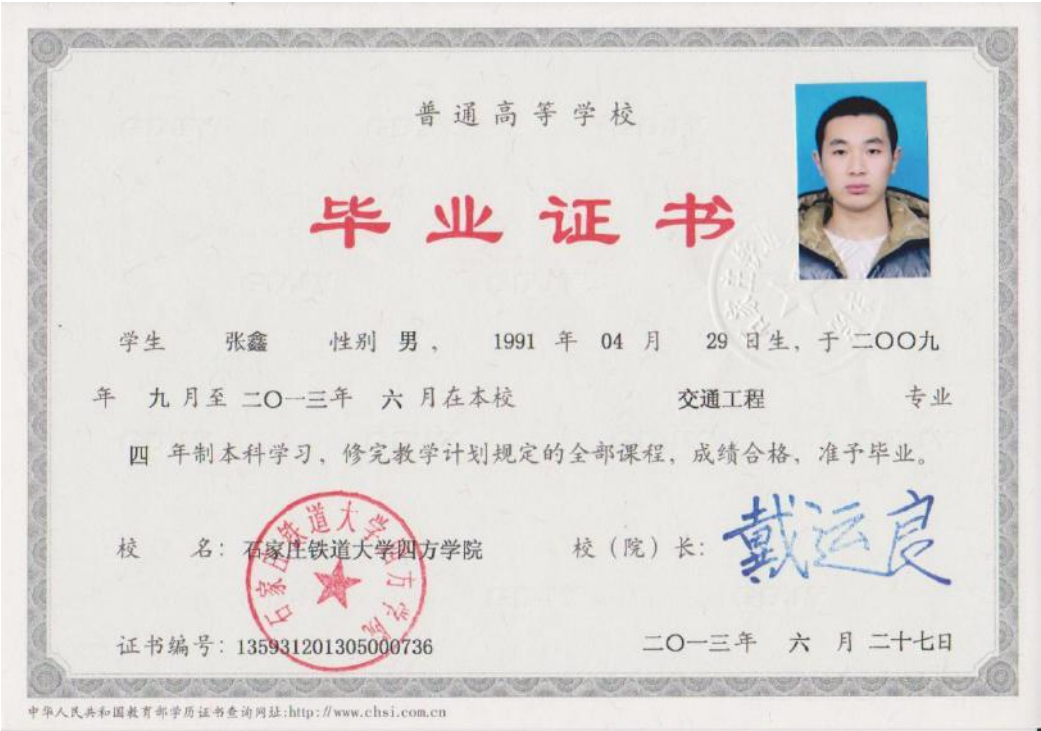 普通高等学校
毕业证书
学生 张鑫 性别 男， 1991 年 04 月 29 日生，于 二〇〇九
年 九 月至 二〇一三年 六 月在本校 交通工程 专业
四 年制本科学习，修完教学计划规定的全部课程，成绩合格，准予毕业。
石家庄铁道大学四方学院
校 名：石家庄铁道大学四方学院 校（院）长：戴运良
证书编号：135931201305000736 二〇一三年 六 月 二十七日
中华人民共和国教育部学历证书查询网址:http://www.chsi.com.cn